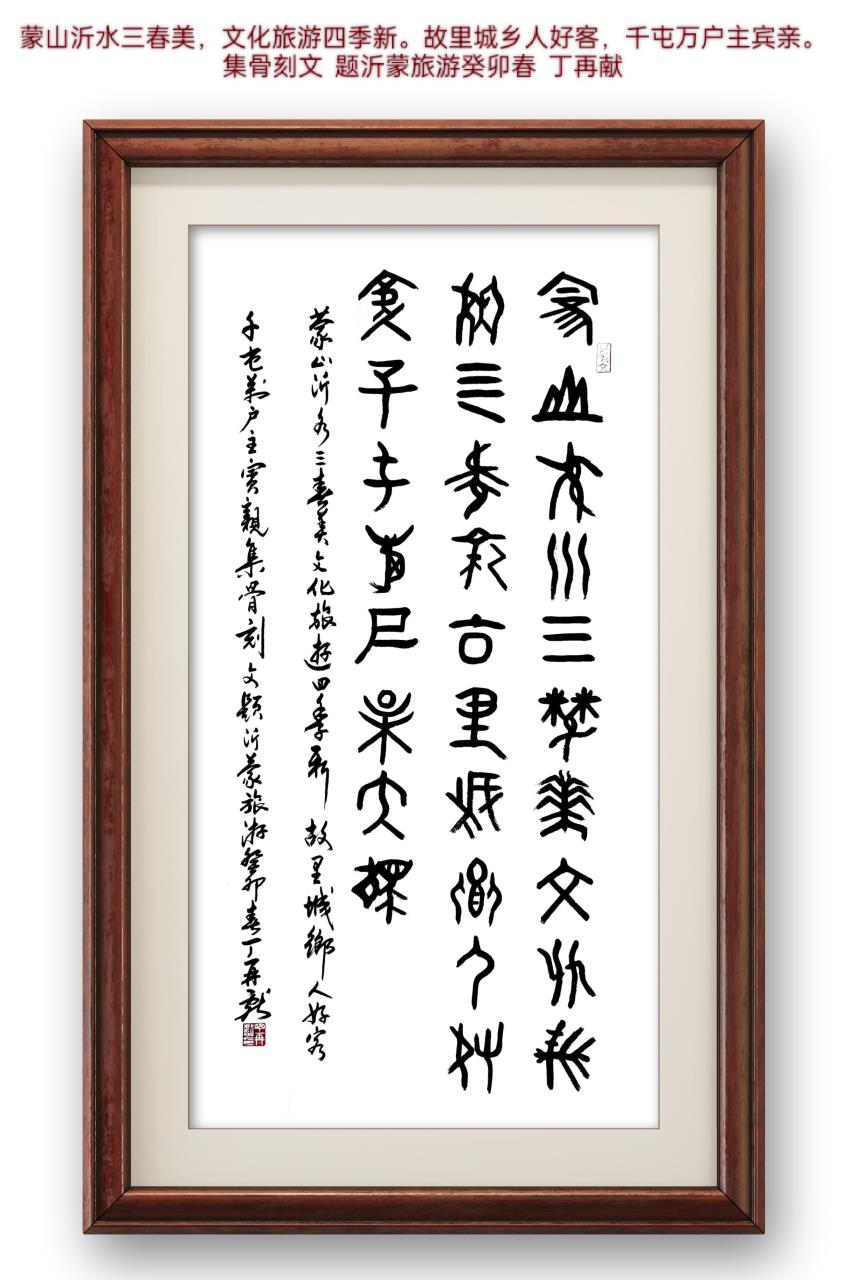 蒙山沂水三春美，文化旅游四季新。故里城乡人好客，千屯万户主宾亲。
集骨刻文 题沂蒙旅游癸卯春 丁再献
蒙山沂水三春美文化旅
游四季新故里城鄉人好
客千屯萬户主賓親
蒙山沂水三春美文化旅遊四季新 故里城鄉人好客
千屯萬户主賓親集骨刻文題沂蒙旅游癸卯春丁再獻